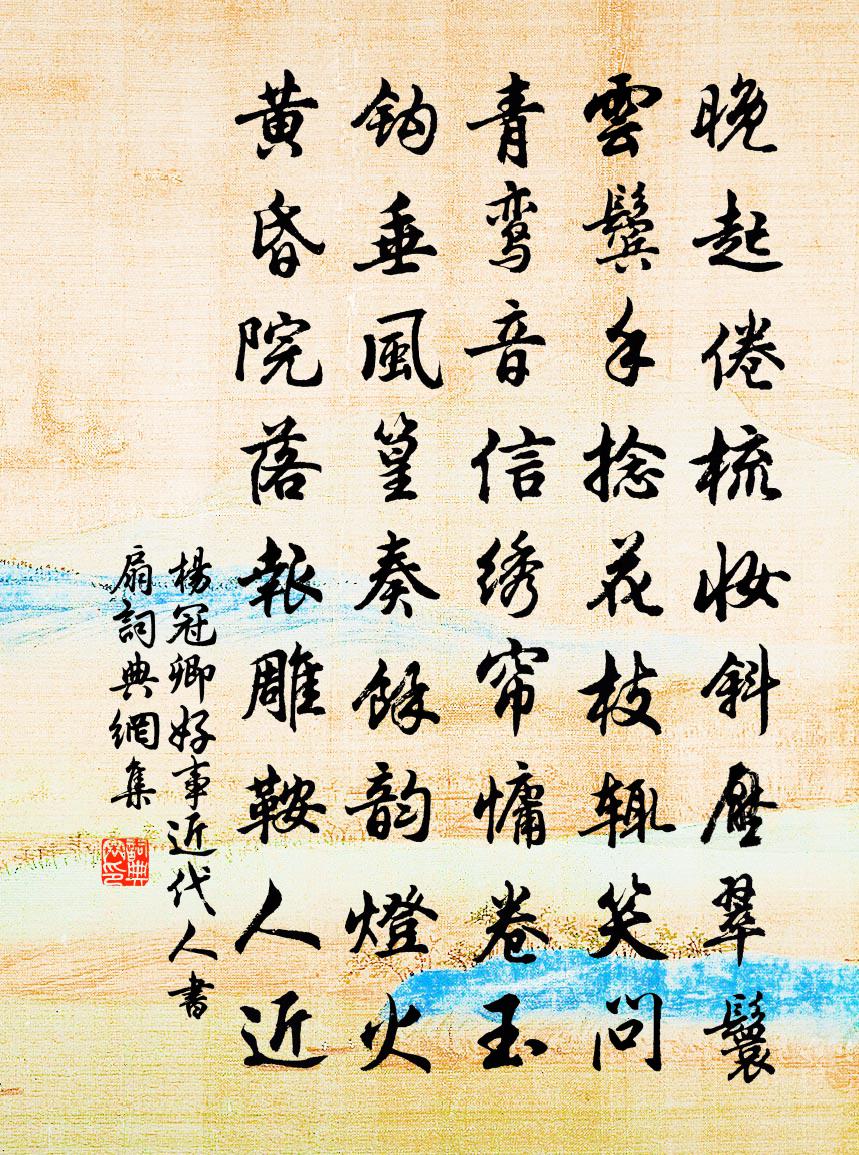 晚起倦梳妆斜壓翠鬟
雲鬢手捻花枝辄笑問
青鸾音信绣帘慵卷玉
鈎垂風篁奏餘韵燈火
黄昏院落報雕鞍人近
楊冠卿好事近代人書
扇詞典網集